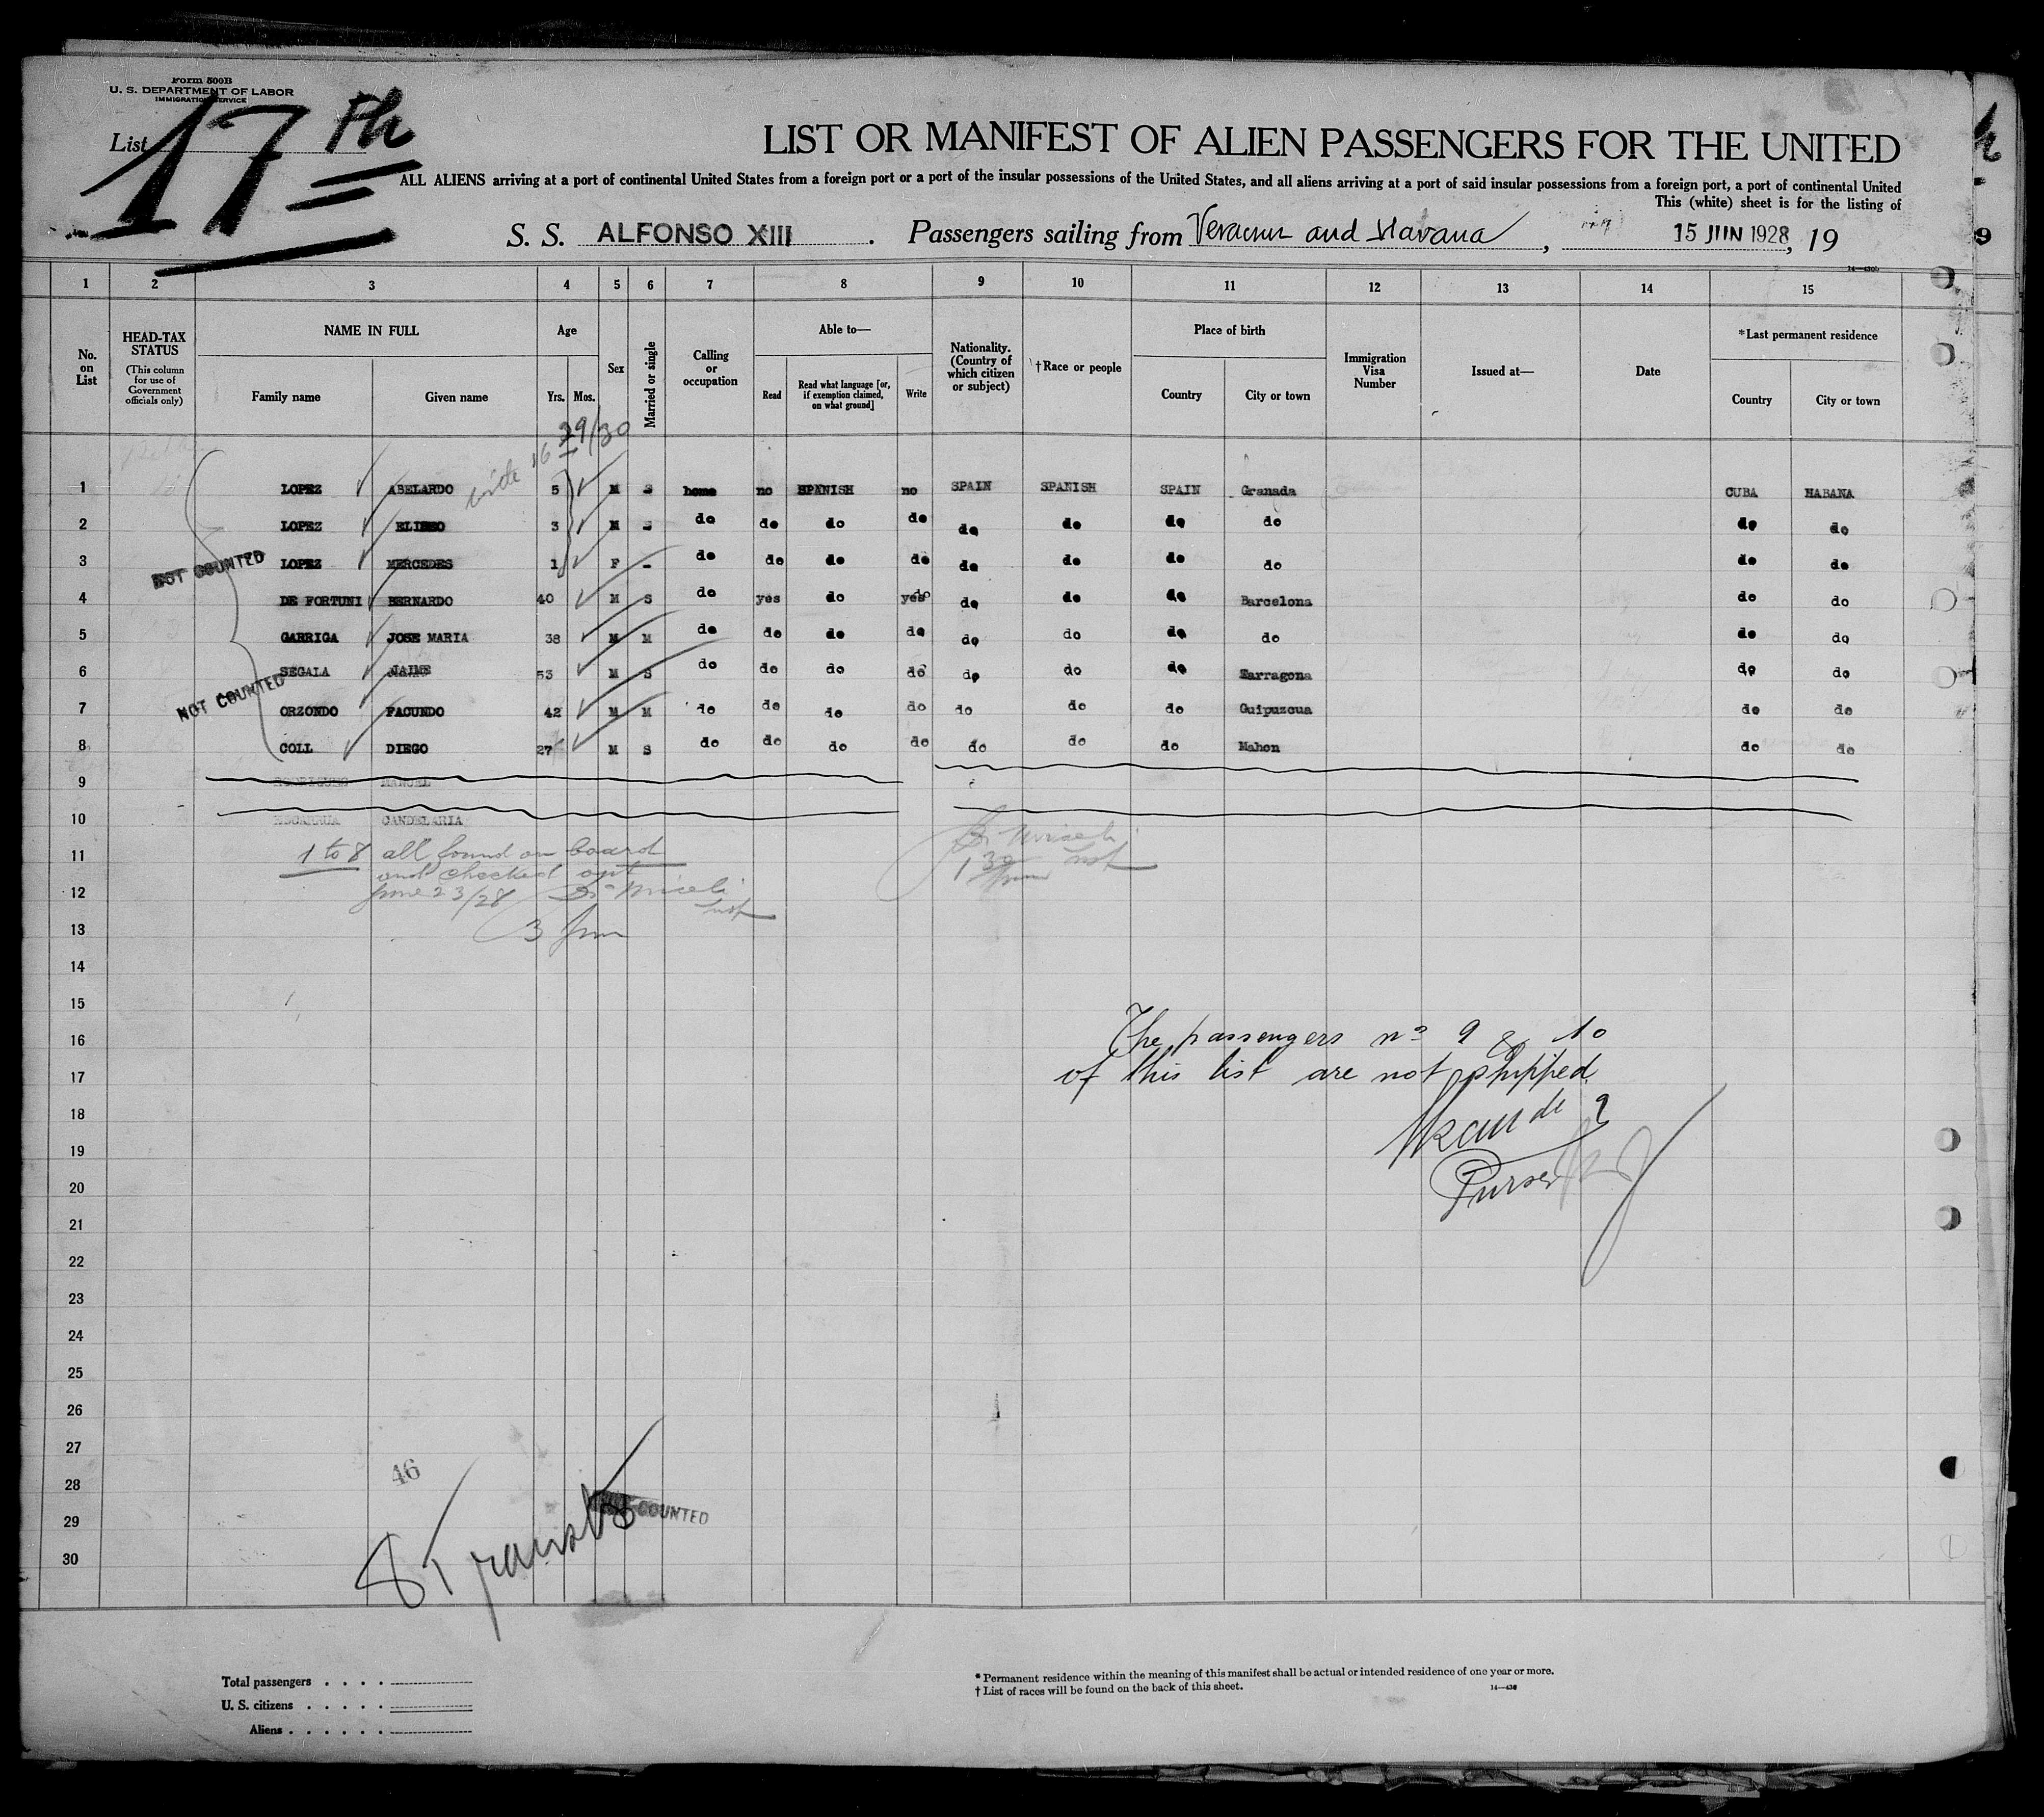 Form 500B
U. S. DEPARTMENT OF LABOR
IMMIGRATION SERVICE
List 17th
LIST OR MANIFEST OF ALIEN PASSENGERS FOR THE UNITED
ALL ALIENS arriving at a port of continental United States from a foreign port or a port of the insular possessions of the United States, and all aliens arriving at a port of said insular possessions from a foreign port, a port of continental United
This (white) sheet is for the listing of
S. S. ALFONSO XIII . Passengers sailing from Veracruz and Havana, 15 JUN 1928, 19
1 2 3 4 5 6 7 8 9 10 11 12 13 14 15
No. on List
HEAD-TAX STATUS
(This column for use of Government officials only)
NAME IN FULL
Family name Given name
Age
Yrs. Mos.
Sex
Married or single
Calling or occupation
Able to—
Read
Read what language [or, if exemption claimed, on what ground]
Write
Nationality. (Country of which citizen or subject)
†Race or people
Place of birth
Country City or town
Immigration Visa Number
Issued at—
Date
*Last permanent residence
Country City or town
29/30
1 LOPEZ ABELARDO 5 M S home no SPANISH no SPAIN SPANISH SPAIN Granada CUBA HABANA
2 LOPEZ ELISEO 3 M S do do do do do do do do do do
3 LOPEZ MERCEDES 1 F - do do do do do do do do do do
4 DE FORTUNI BERNARDO 40 M S do yes do yes do do do Barcelona do do
5 GARRIGA JOSE MARIA 38 M M do do do do do do do do do do
6 SEGALA JAIME 53 M S do do do do do do do Tarragona do do
7 ORZONDO FACUNDO 42 M M do do do do do do do Guipuzcua do do
8 COLL DIEGO 27 M S do do do do do do do Mahon do do
NOT COUNTED
NOT COUNTED
9 RODRIGUEZ MANUEL
10 ESCARRUA CANDELARIA
11 1 to 8 all found on board
12 and checked out
June 23/28
13
14
15
16 The passengers nº 9 & 10
17 of this list are not shipped
18
19
Purser
20
21
22
23
24
25
26
27
28 46
29 NOT COUNTED
30 8 Transits
Total passengers . . . .
U. S. citizens . . . . .
Aliens . . . . . .
* Permanent residence within the meaning of this manifest shall be actual or intended residence of one year or more.
† List of races will be found on the back of this sheet.